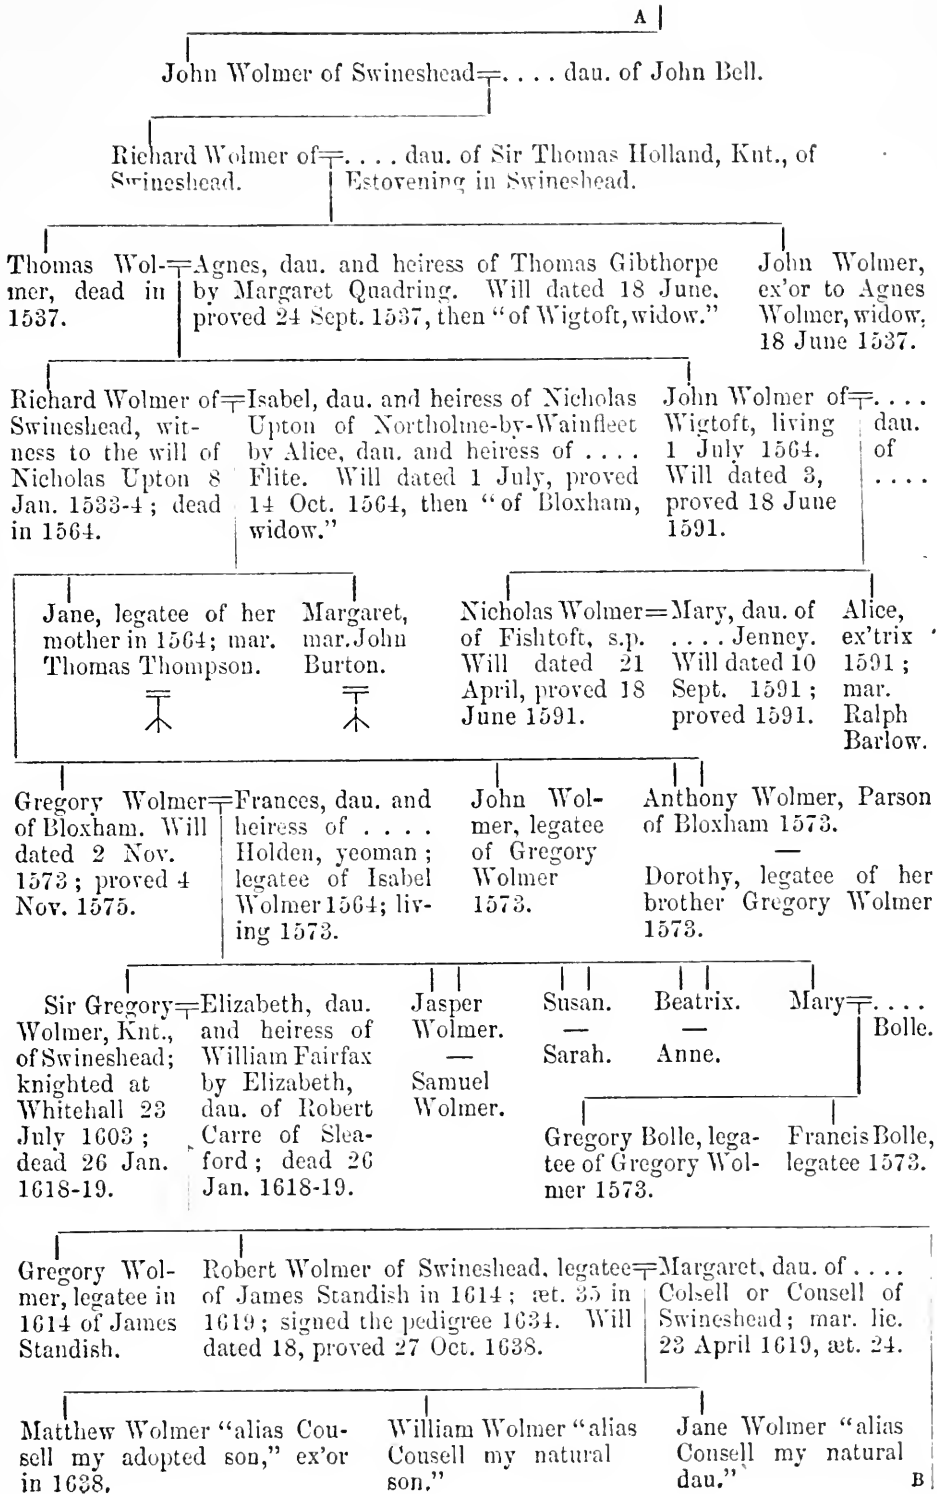 A
John Wolmer of Swineshead=. . . . dau. of John Bell.
Richard Wolmer of
Swineshead.
=. . . . dau. of Sir Thomas Holland, Knt., of
Estovening in Swineshead.
Thomas Wol-
mer, dead in
1537.
=Agnes, dau. and heiress of Thomas Gibthorpe
by Margaret Quadring. Will dated 18 June,
proved 24 Sept. 1537, then “of Wigtoft, widow.”
John Wolmer,
ex'or to Agnes
Wolmer, widow,
18 June 1537.
Richard Wolmer of
Swineshead, wit-
ness to the will of
Nicholas Upton 8
Jan. 1533-4; dead
in 1564.
=Isabel, dau. and heiress of Nicholas
Upton of Northolme-by-Wainfleet
by Alice, dau. and heiress of . . . .
Flite. Will dated 1 July, proved
14 Oct. 1564, then “of Bloxham,
widow.”
John Wolmer of
Wigtoft, living
1 July 1564.
Will dated 3,
proved 18 June
1591.
=. . . .
dau.
of
. . . .
Jane, legatee of her
mother in 1564; mar.
Thomas Thompson.
Margaret,
mar. John
Burton.
Nicholas Wolmer
of Fishtoft, s.p.
Will dated 21
April, proved 18
June 1591.
=Mary, dau. of
. . . . Jenney.
Will dated 10
Sept. 1591;
proved 1591.
Alice,
ex'trix
1591;
mar.
Ralph
Barlow.
Gregory Wolmer
of Bloxham. Will
dated 2 Nov.
1573; proved 4
Nov. 1575.
=Frances, dau. and
heiress of . . . .
Holden, yeoman;
legatee of Isabel
Wolmer 1564; liv-
ing 1573.
John Wol-
mer, legatee
of Gregory
Wolmer
1573.
Anthony Wolmer, Parson
of Bloxham 1573.
—
Dorothy, legatee of her
brother Gregory Wolmer
1573.
Sir Gregory
Wolmer, Knt.,
of Swineshead;
knighted at
Whitehall 23
July 1603;
dead 26 Jan.
1618-19.
=Elizabeth, dau.
and heiress of
William Fairfax
by Elizabeth,
dau. of Robert
Carre of Slea-
ford; dead 26
Jan. 1618-19.
Jasper
Wolmer.
—
Samuel
Wolmer.
Susan.
—
Sarah.
Beatrix.
—
Anne.
Mary=. . . .
Bolle.
Gregory Bolle, lega-
tee of Gregory Wol-
mer 1573.
Francis Bolle,
legatee 1573.
Gregory Wol-
mer, legatee in
1614 of James
Standish.
Robert Wolmer of Swineshead, legatee
of James Standish in 1614; æt. 35 in
1619; signed the pedigree 1634. Will
dated 18, proved 27 Oct. 1638.
=Margaret, dau. of . . . .
Colsell or Consell of
Swineshead; mar. lic.
23 April 1619, æt. 24.
Matthew Wolmer “alias Cou-
sell my adopted son,” ex'or
in 1638.
William Wolmer “alias
Cousell my natural
son.”
Jane Wolmer “alias
Consell my natural
dau.”
B